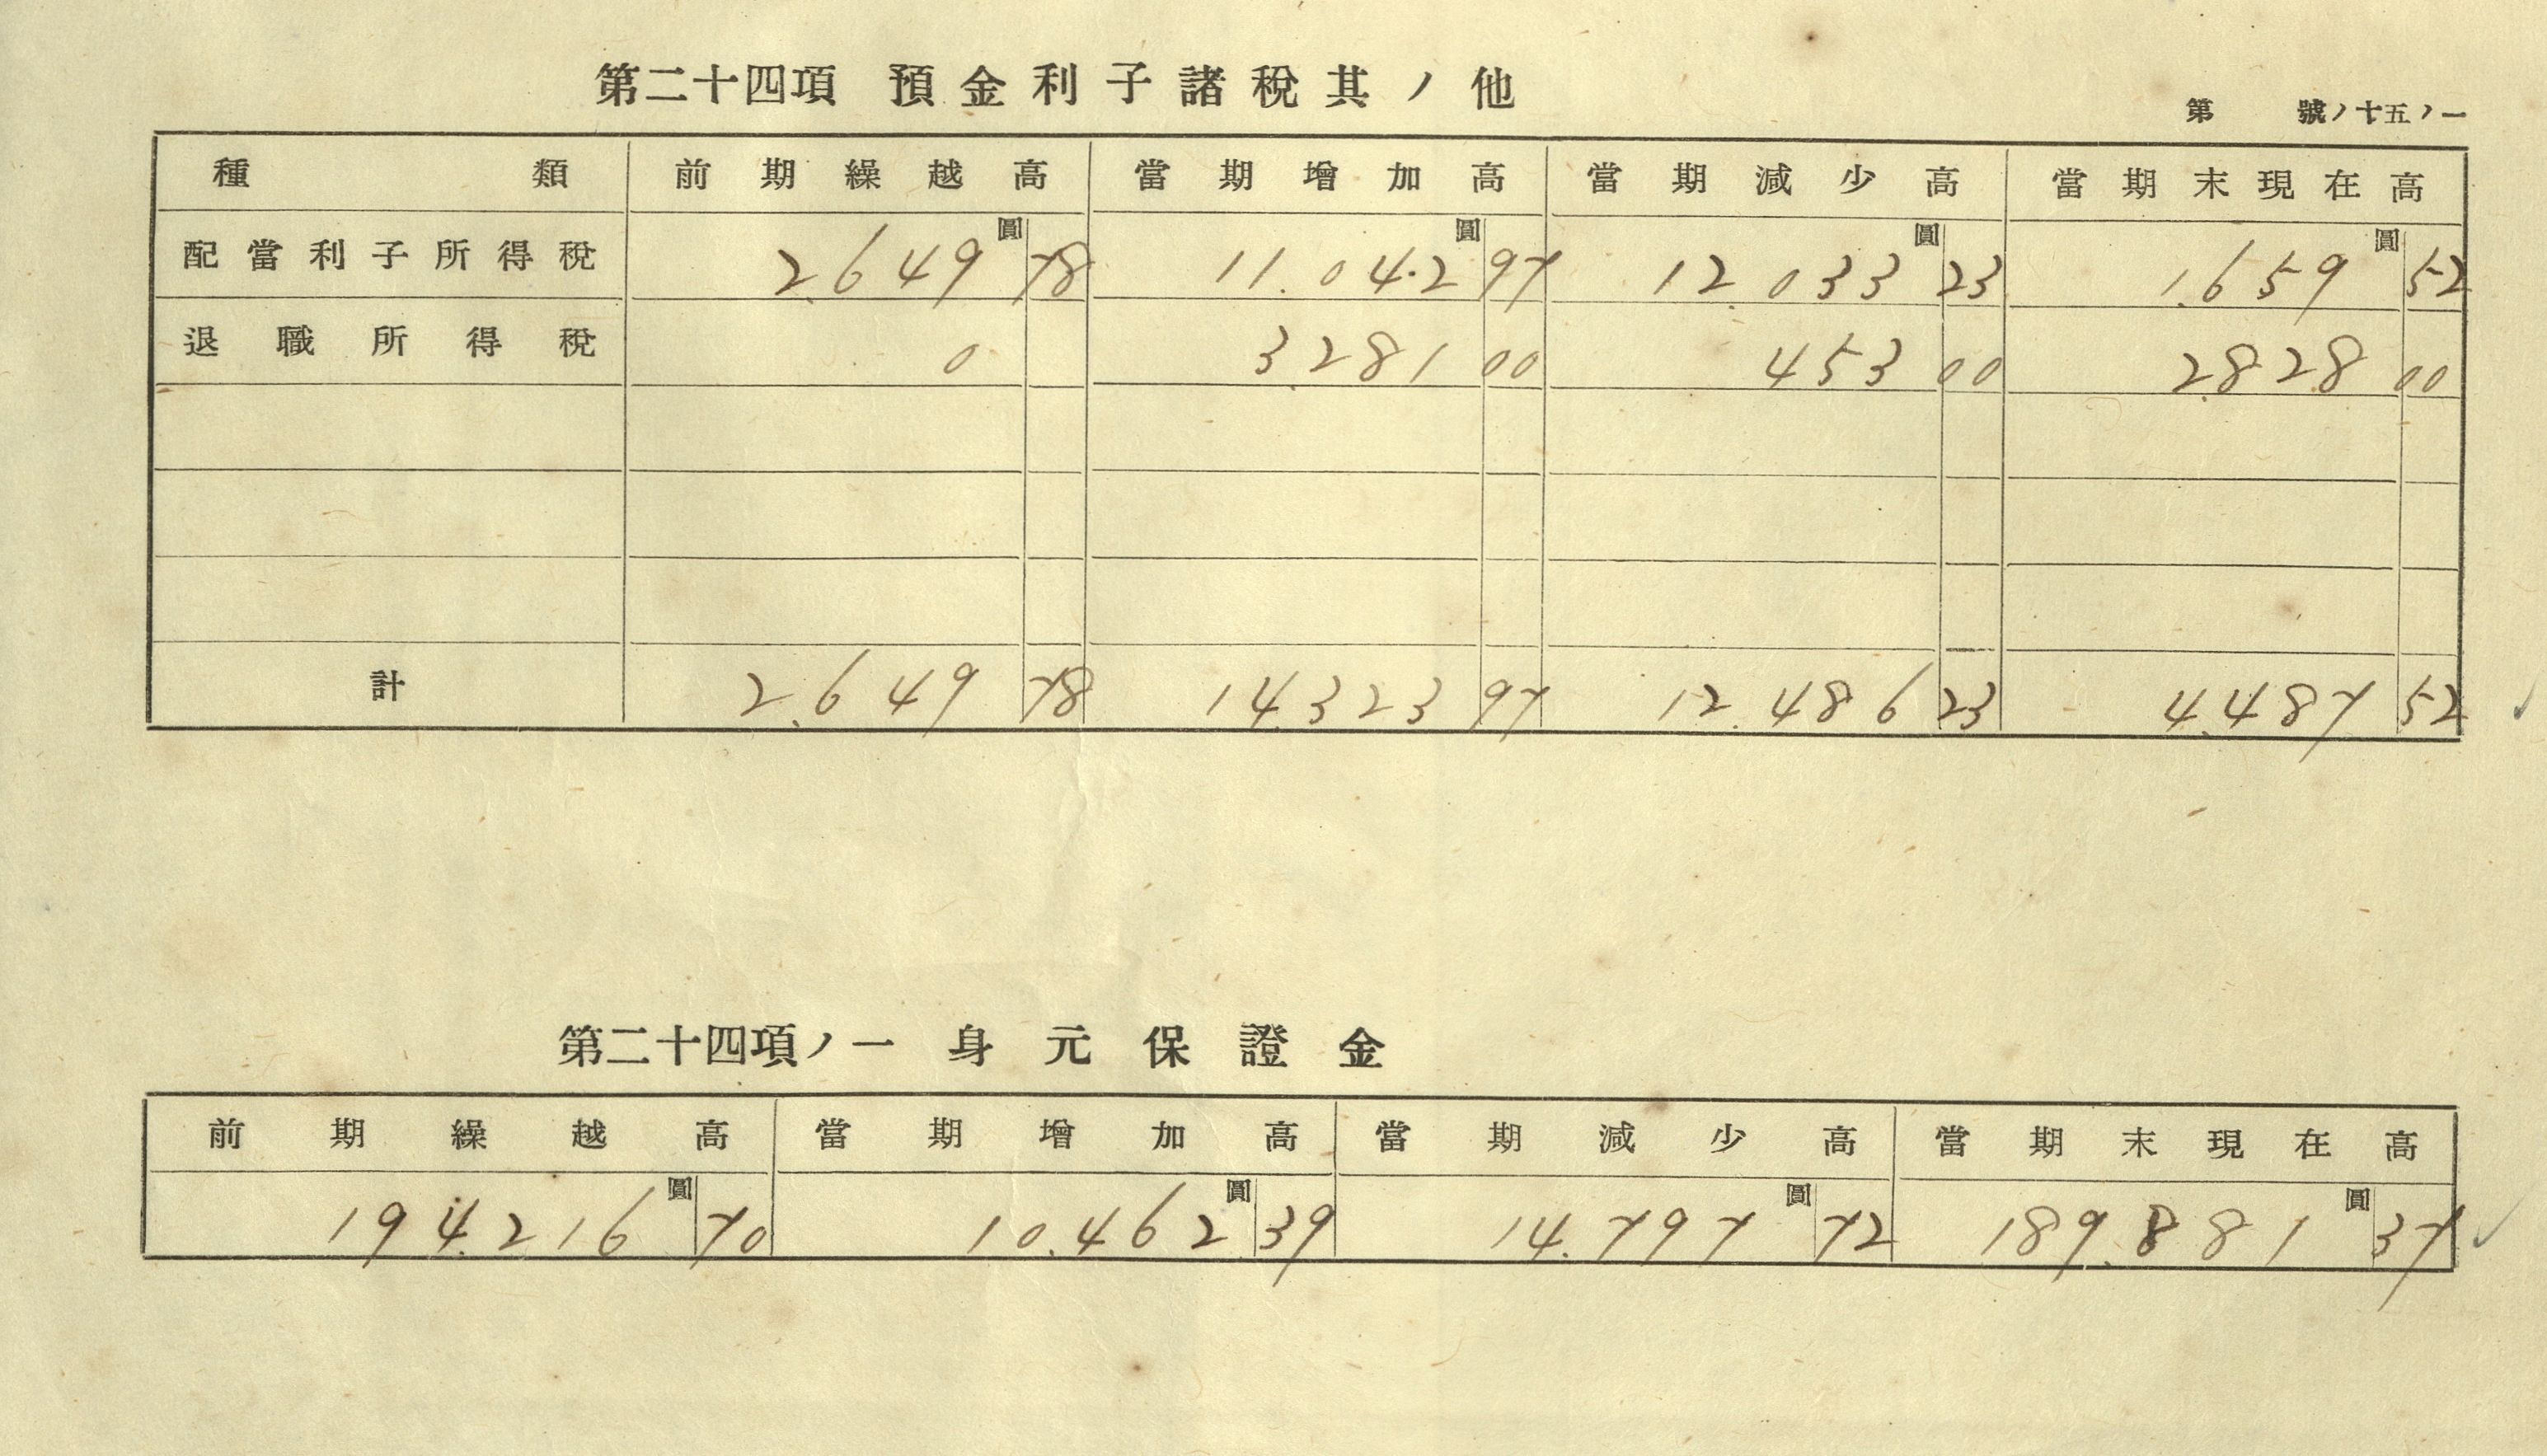 第二十四項 預金利子諸稅其ノ他
第 號ノ十五ノ一
種類 前期繰越高 當期增加高 當期減少高 當期末現在高
圓 圓 圓 圓
配當利子所得稅 2.649 78 11.042 97 12.033 23 1.659 52
退職所得稅 0 3.281 00 453 00 2.828 00
計 2.649 78 14.323 97 12.486 23 4.487 52
第二十四項ノ一 身元保證金
前期繰越高 當期增加高 當期減少高 當期末現在高
圓 圓 圓 圓
194.216 70 10.462 39 14.797 72 189.881 37